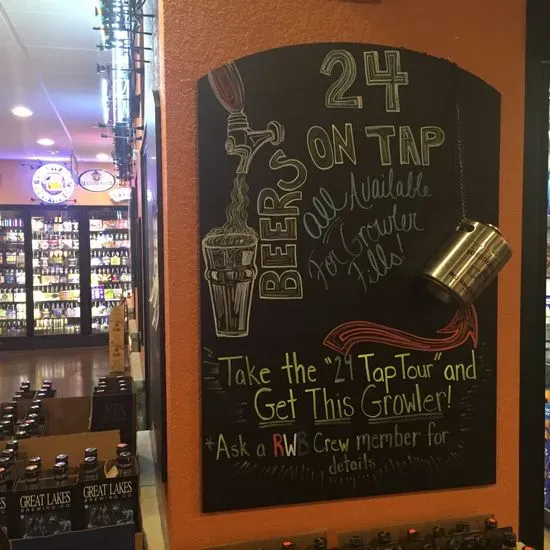 24
BEERS ON TAP
All Available
For Growler
Fills!
Take the "24 Tap Tour" and
Get This Growler!
*Ask a RWB Crew member for
details
GREAT LAKES
BREWING CO
GREAT LAKES
BREWING CO